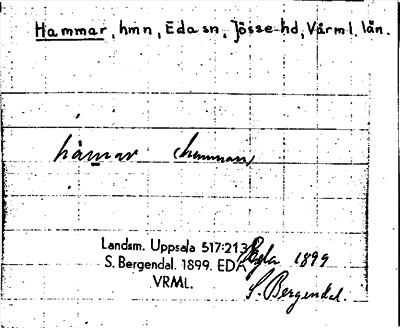 Hammar, hmn, Eda sn, Jösse hd, Värml. län.
hàmar (hemman)
Landsm. Uppsala 517:213
S. Bergendal. 1899. EDA
VRML.
1899
S. Bergendal.